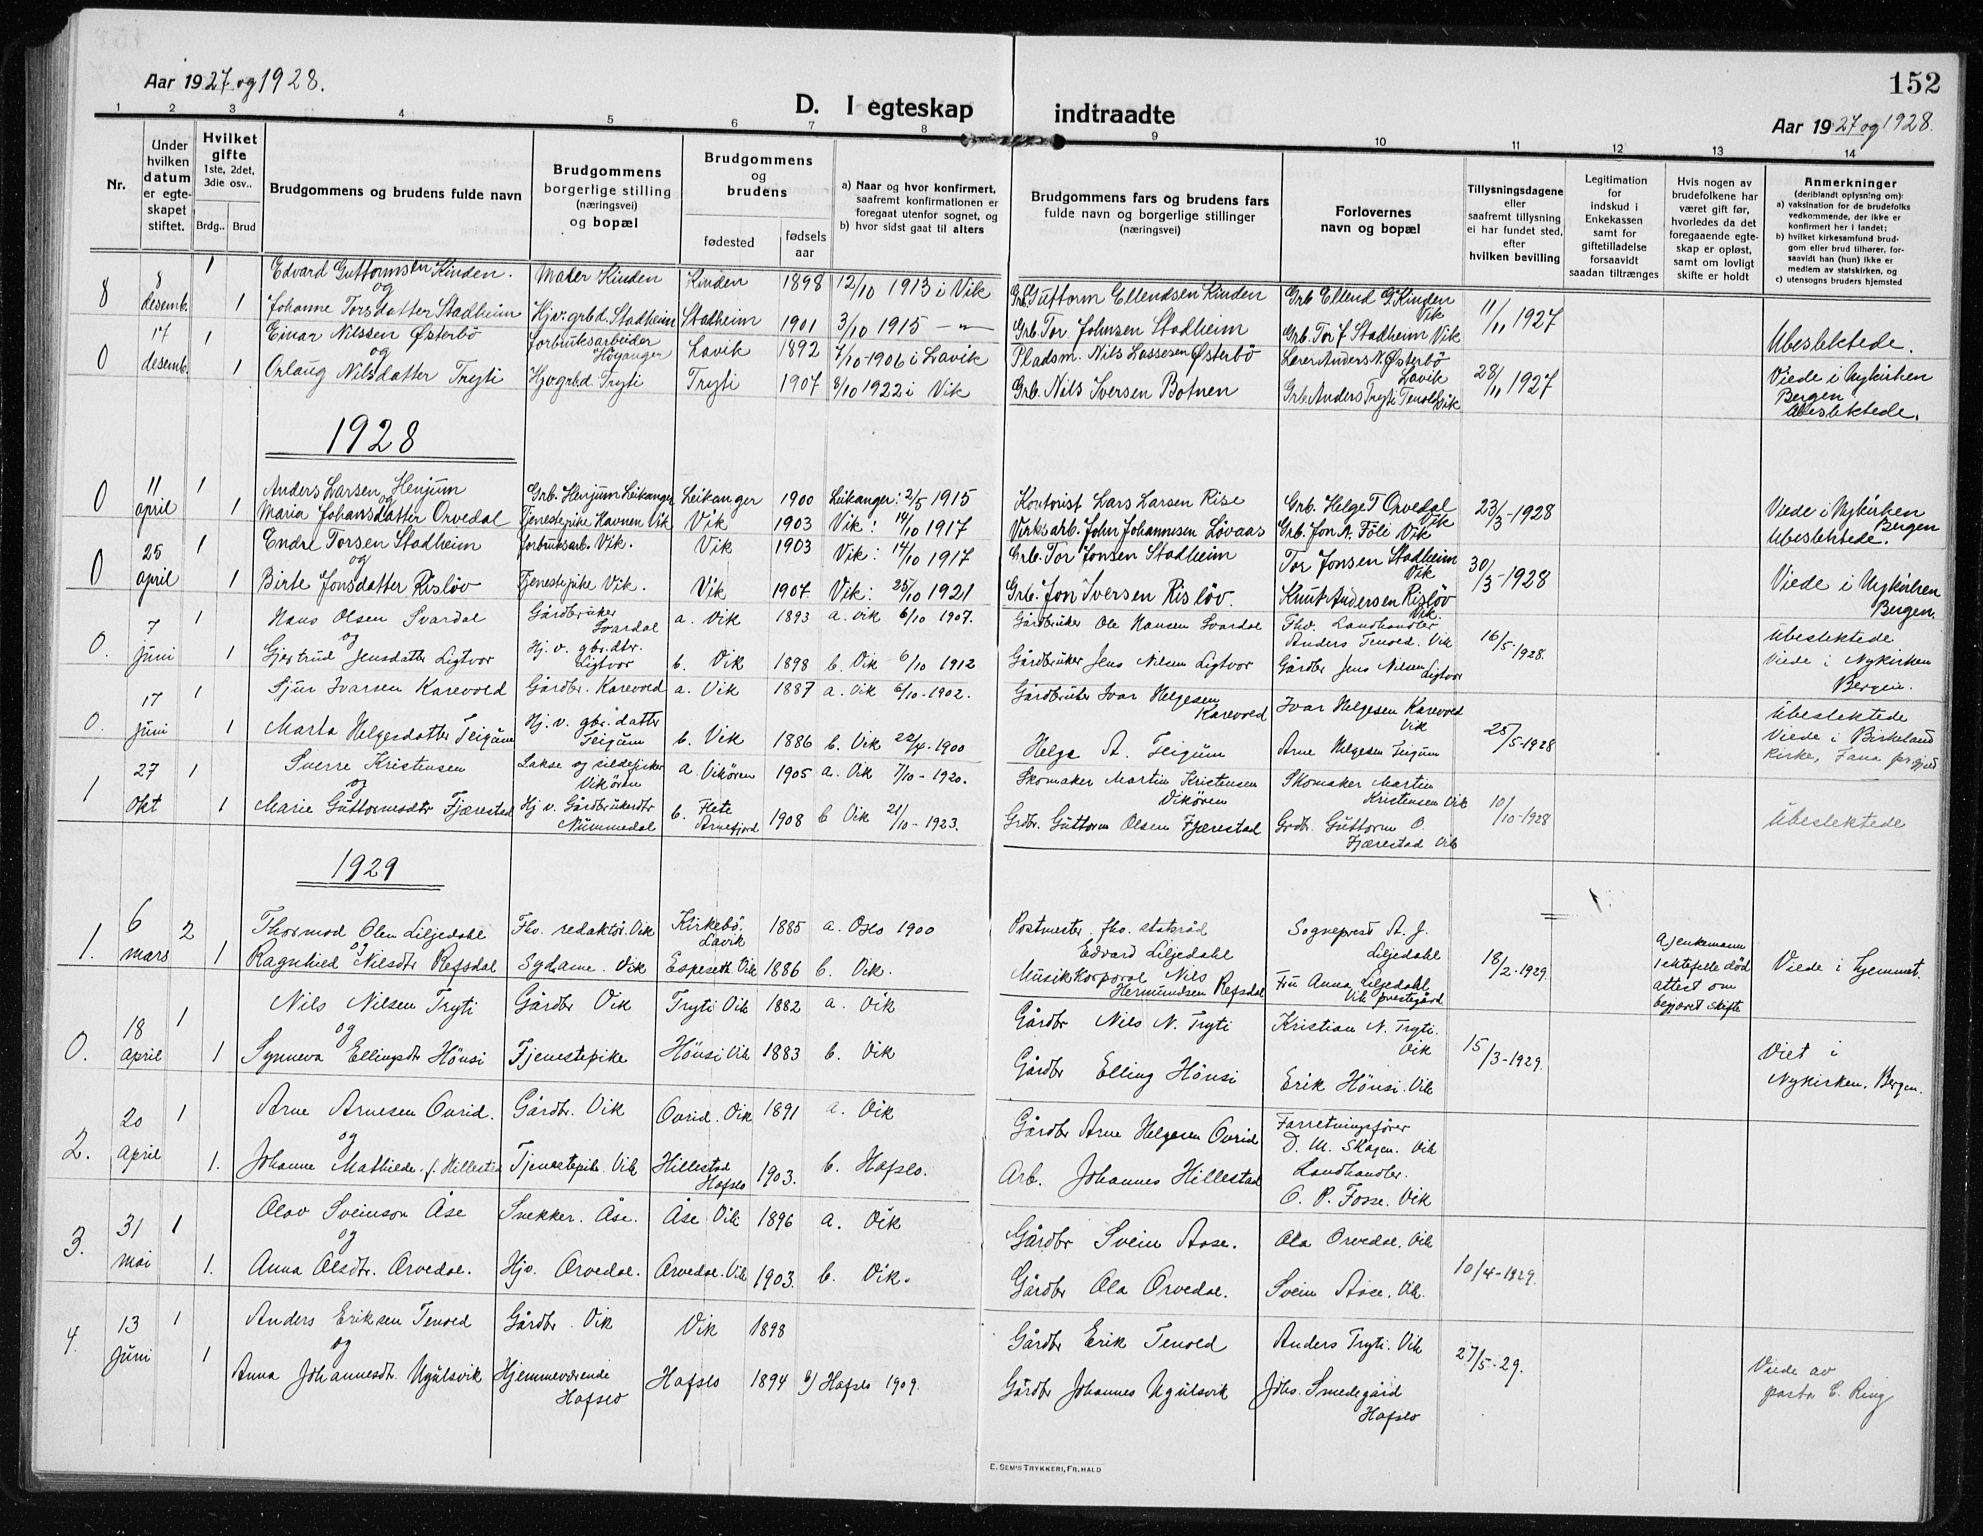 Aar 1927 og 1928.
D. I egteskap indtraadte
152
Aar 1927 og 1928.
1 2 3 4 5 6 7 8 9 10 11 12 13 14
Nr.
Under hvilken datum er egteskapet stiftet.
Hvilket gifte 1ste, 2det, 3die osv..
Brdg.. Brud
Brudgommens og brudens fulde navn
Brudgommens borgerlige stilling (næringsvei) og bopæl
Brudgommens og brudens
fødested
fødsels aar
a) Naar og hvor konfirmert, saafremt konfirmationen er foregaat utenfor sognet, og
b) hvor sidst gaat til alters
Brudgommens fars og brudens fars fulde navn og borgerlige stillinger (næringsvei)
Forlovernes navn og bopæl
Tillysningsdagene eller saafremt tillysning ei har fundet sted, efter hvilken bevilling
Legitimation for indskud i Enkekassen samt for giftetilladelse forsaavidt saadan tiltrænges
Hvis nogen av brudefolkene har været gift før, hvorledes da det foregaaende egteskap er opløst, samt om lovligt skifte er holdt
Anmerkninger (deriblandt oplysning om):
a) vaksination for de brudefolks vedkommende, der ikke er konfirmert her i landet;
b) hvilket kirkesamfund brudgom eller brud tilhører, forsaavidt han (hun) ikke er medlem av statskirken, og
c) utensogns bruders hjemsted
8 8 desemb. 1 Edvard Guttormsen Kinden. Maler Kinden Kinden 1898 12/10 1913 i Vik Grb. Guttorm Ellendsen Kinden Grb Ellend G. Kinden Vik 11/11 1927
og
1 Johanne Torsdatter Stadheim Hjv. grbd. Stadheim Stadheim 1901 3/10 1915 — " — Grb. Tor Johnsen Stadheim Grb. Tor J Stadheim Vik Ubeslektede.
0 17 desemb. 1 Einar Nilssen Østerbø forbruksarbeider Höyanger Lavik 1892 7/10-1906 i Lavik Pladsm. Nils Lassesen Østerbö Lærer Anders N. Østerbö Lavik 28/11 1927 Viede i Nykirken Bergen
og
1 Orlaug Nilsdatter Tryti Hjv grbd Tryti Tryti 1907 8/10 1922 i Vik Grb. Nils Iversen Botnen Grb. Anders Tryti Tenold Vik Ubeslektede.
1928
0 11 april 1 Anders Larsen Henjum Grb. Henjum Leikanger Leikanger 1900 Leikanger: 2/5 1915 Kontorist Lars Larsen Rise Grb. Helge T Orvedal Vik 23/3-1928 Viede i Nykirken Bergen
og
1 Maria Johansdatter Orvedal Tjenestepike Havnen Vik Vik 1903 Vik: 14/10 1917 Virksarb. John Johannesen Lövaas Grb. Jon A. Föli Vik Ubeslektede.
0 25 april 1 Endre Torsen Stadheim forbruksarb. Vik. Vik 1903 Vik: 14/10 1917 Grb. Tor Jonsen Stadheim Tor Jonsen Stadheim Vik 30/3-1928
og
1 Birte Jonsdatter Risløv Tjenestepike Vik. Vik 1907 Vik: 25/10 1921 Grb. Jon Iversen Risløv. Knut Andersen Risløv Vik. Viede i Nykirken Bergen.
0. 7 Juni 1 Hans Olsen Svardal Gårdbruker Svardal a. Vik 1893 a. Vik 6/10 1907. Gårdbruker Ole Hansen Svardal Fhv. Landhandler Anders Tenold. Vik 16/5-1928. Ubeslektede
og
1 Gjertrud Jensdatter Ligtvor Hj. v. gbr. dtr. Ligtvor b. Vik 1898 b. Vik 6/10 1912 Gårdbruker Jens Nilsen Ligtvor Gårdbr Jens Nilsen Ligtvor Viede i Nykirken Bergen.
0. 17 Juni 1 Sjur Ivarsen Karevold Gårdbr. Karevold a. Vik 1887 a. Vik 5/10-1902. Gårdbruker Ivar Helgesen Karevold Ivar Helgesen Karevold Vik 25/5-1928 Ubeslektede
1 Marta Helgesdatter Teigum Hj. v. gbr. datter Teigum b. Vik 1886 b. Vik 22/4-1900 Helge A. Teigum Arne Helgesen Teigum Viede i Birkeland kirke, Fana prgjeld
1 27 Okt 1 Sverre Kristensen Lakse og sildefisker Vikören a. Vikören 1905 a. Vik 7/10-1920. Skomaker Martin Kristensen Vikören Skomaker Martin Kristensen Vik 10/10-1928
og
1 Marie Guttormsdtr Fjærestad Hj v. Gårdbrukerdtr Nummedal b. Flete Arnefjord 1908 b Vik 21/10-1923. Grdbr. Guttorm Olsen Fjærestad Grdbr. Guttorm O. Fjærestad Vik Ubeslektede
1929
1. 6 mars 2 Thormod Olen Liljedahl Fhv. redaktør. Vik Kirkebö. Lavik 1885 a. Oslo 1900 Postmester fhv. statsråd Edvard Liljedahl Sogneprest A. J. Liljedahl 18/2-1929. a) enkemann 1 ektefelle död attest om begjæret skifte Viede i hjemmet.
og
1 Ragnhild Nilsdtr Refsdal Sydame. Vik Espeseth Vik 1886 b. Vik. Musikkorporal Nils Hermundsen Refsdal Fru Anna Liljedahl Vik prestgård.
0. 18 april 1 Nils Nilsen Tryti Gårdbr Vik Tryti Vik 1882 a. Vik Gårdbr Nils N. Tryti Kristian N. Tryti. Vik 15/3-1929. Viet i Nykirken. Bergen.
og
1 Synneva Ellingsdtr Hönsi Tjenestepike Hönsi Vik 1883 b. Vik Gårdbr Elling Hönsi Erik Hönsi. Vik
2. 20 april 1 Arne Arnesen Ovrid. Gårdbr. Vik Ovrid. Vik 1891 a. Vik Gårdbr Arne Helgesen Ovrid Forretningsfører D. M. Skagen. Vik
og
1. Johanne Mathilde. J. Hillestad Tjenestepike. Vik Hillestad Hafslo 1903. b. Hafslo. Arb. Johannes Hillestad Landhandler. O. P. Fosse. Vik
3. 31 mai 1 Olav Sveinson Åse Snekker. Åse. Åse Vik 1896 a. Vik Gårdbr Svein Aase. Ola Orvedal. Vik 10/4-1929.
og
1. Anna Olsdtr. Orvedal. Hjv. Orvedal. Orvedal. Vik 1903. b. Vik. Gårdbr Ola Orvedal. Svein Aase. Vik.
4. 13 Juni 1 Anders Eriksen Tenold Gårdbr. Vik Vik 1898 Gårdbr Erik Tenold Anders Tryti. Vik 27/5-29.
og
1 Anna Johannesdtr. Ugulsvik Hjemmeværende Hafslo Hafslo 1894 b) Hafslo 1909. Gårdbr Johannes Ugulsvik Johs. Smedegård Hafslo Viede av pastor E. Ring
E. SEM'S TRYKKERI, FR.HALD